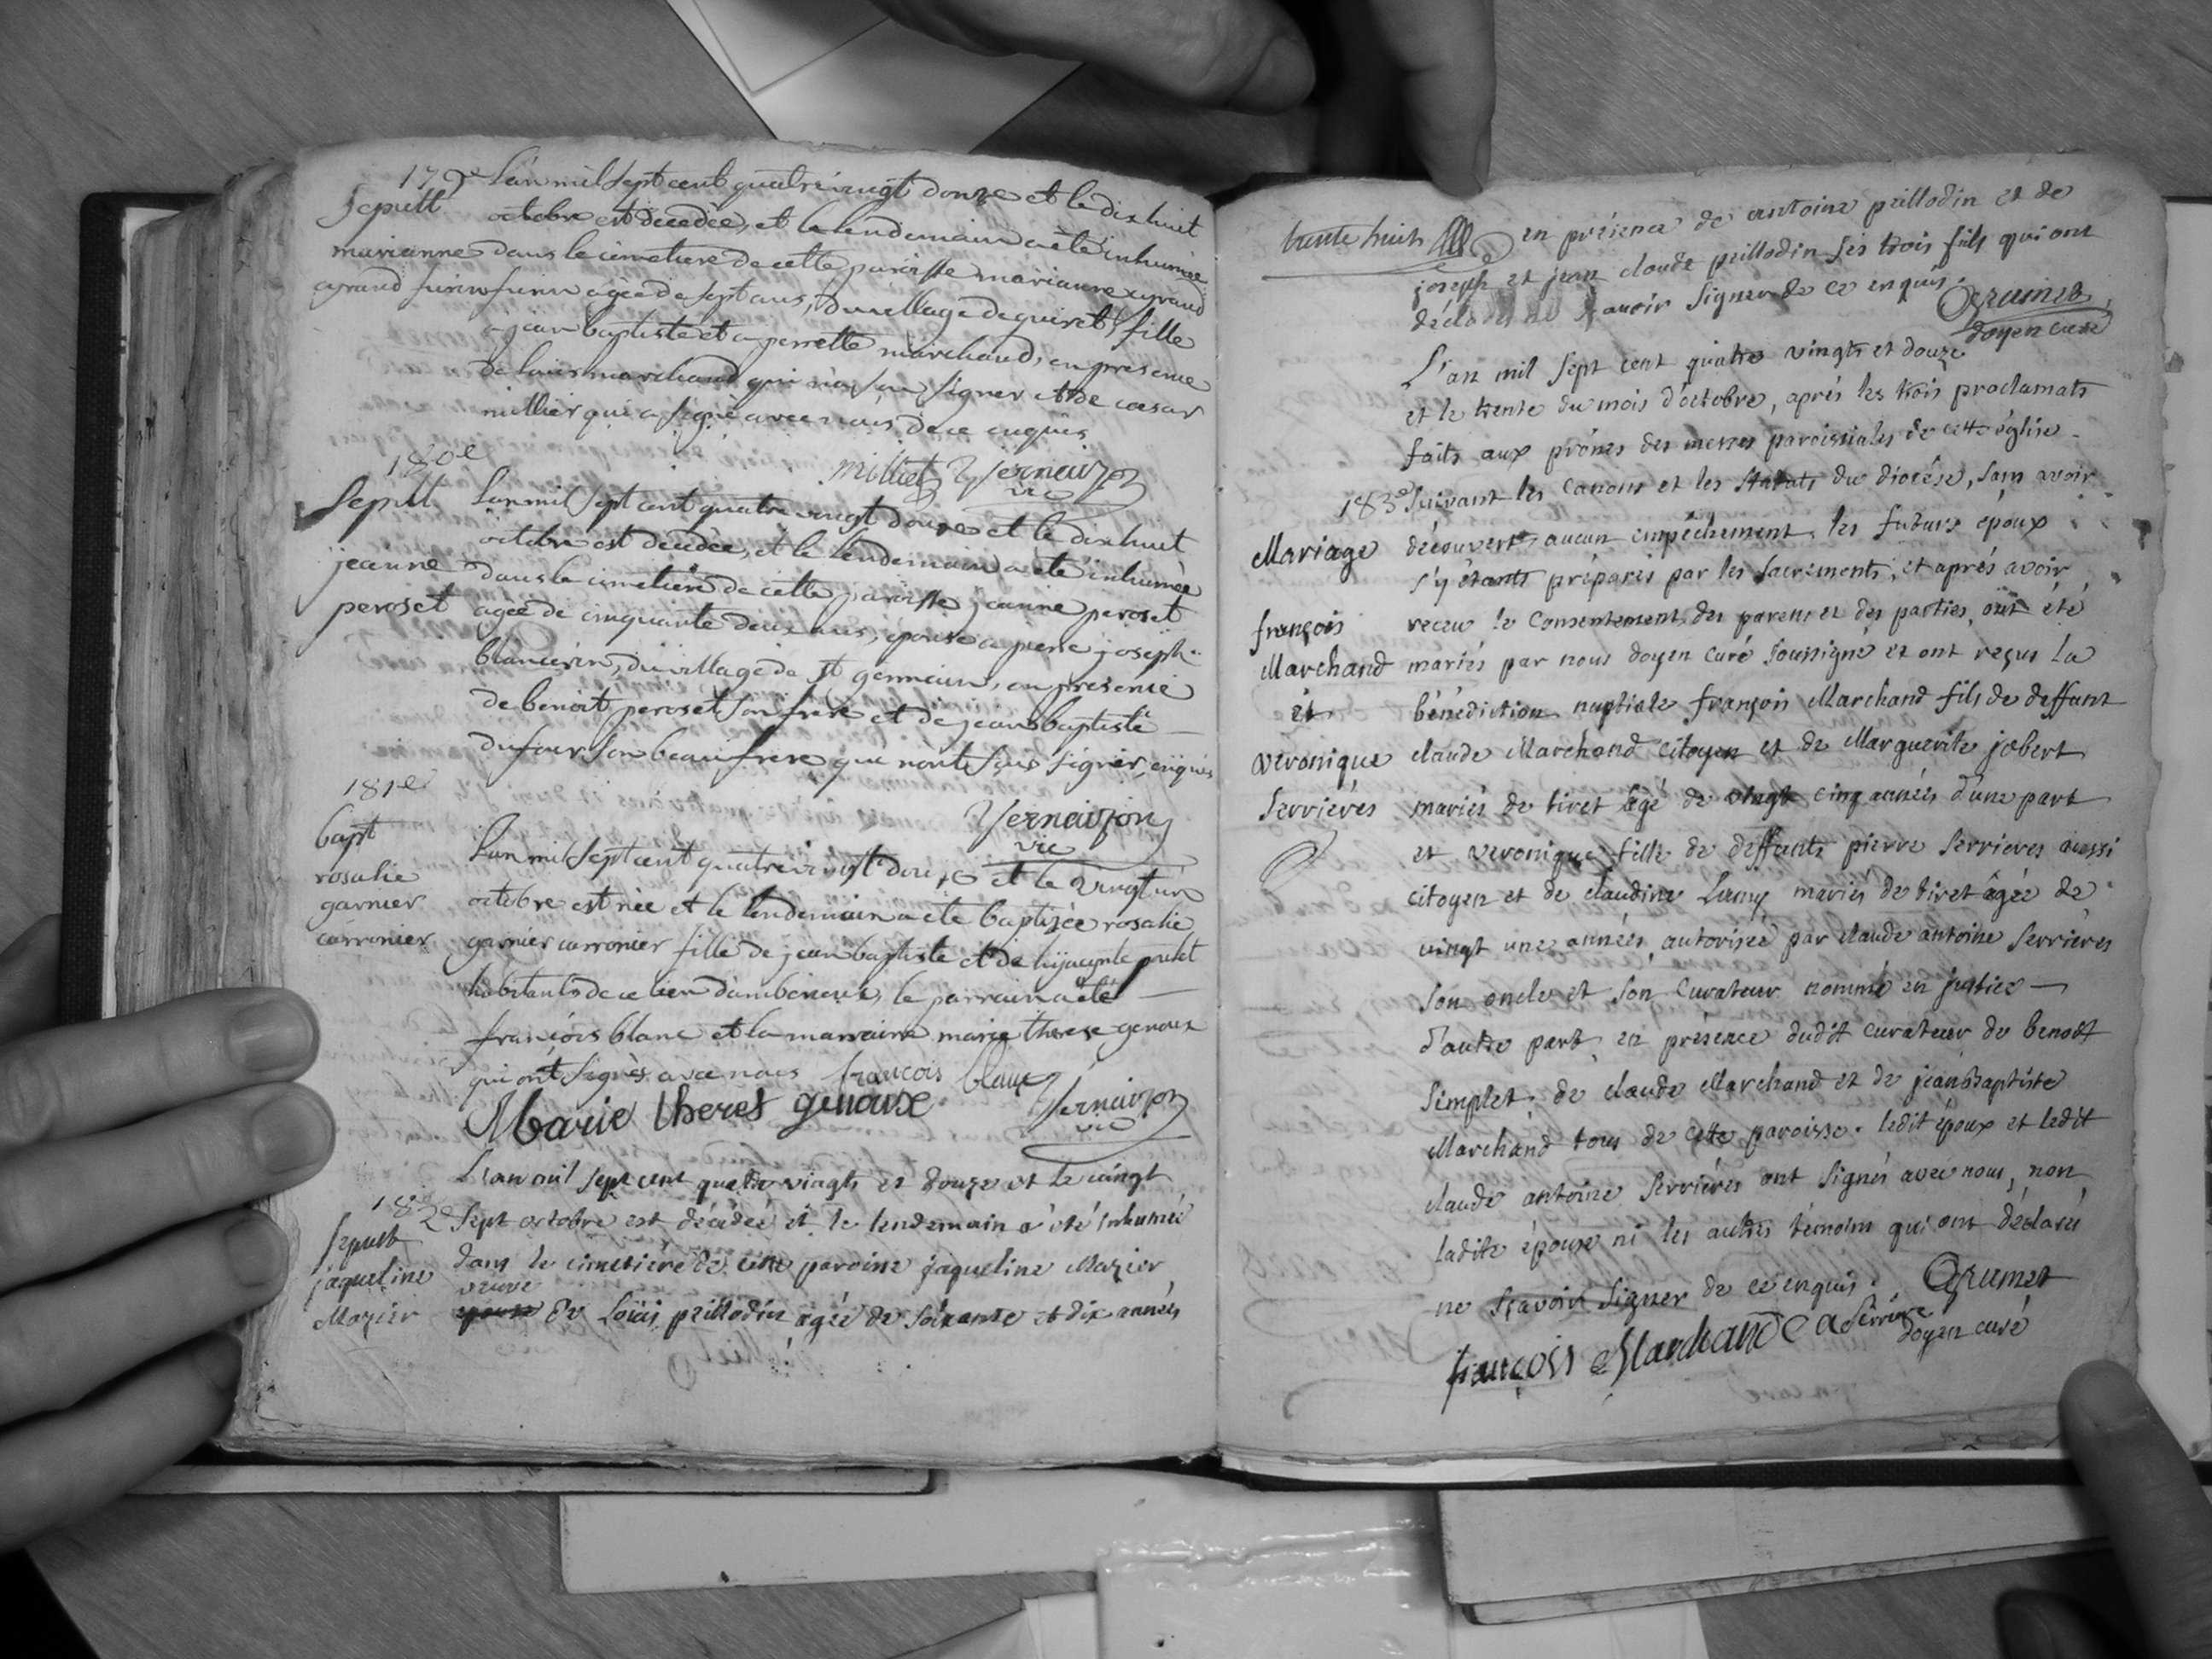 179e L'an mil sept cent quatre vingt douze et le dix huit
Sepult octobre est decedée, et le lendemain a été inhumée
marianne dans le cimetiere de cette paroisse marianne ayraud
ayraud agée de sept ans, du village de quiret, fille
a jean baptiste et a perrette marchand, en presence
de louis marchand qui n'a su signer et de cæsar
millier qui a signé avec nous de ce enquis
milliet Vernaizon
vic
180e
Sepult L'an mil sept cent quatre vingt douze et le dix huit
octobre est decedée, et le lendemain a été inhumée
jeanne dans le cimetiere de cette paroisse jeanne peroset
peroset agée de cinquante deux ans, epouse a pierre joseph
du village de st germain, en presence
de benoit peroset son frere et de jean baptiste
dufour son beaufrere qui n'ont sçus signer, enquis
Vernaizon
vic
181e
bapt L'an mil sept cent quatre vingt douze et le vingt un
rosalie octobre est née et le lendemain a été baptizée rosalie
garnier garnier carronier fille de jean baptiste et de hyacynte
carronier habitants de ce lieu d'amberieux, le parrain a été
françois blanc et la marraine marie therese genoux
qui ont signés avec nous françois blanc
Marie theres genoux Vernaizon
vic
L'an mil sept cent quatre vingts et douze et le vingt
182e sept octobre est décédée et le lendemain a été inhumée
Sepult dans le cimetiere de cette paroisse jaqueline Mazier
jaqueline veuve
Mazier epouse de Loüis peillodin agée de soixante et dix années
trente huit en présence de antoine peillodin et de
joseph et jean claude peillodin ses trois fils qui ont
déclarés ne sçavoir signer de ce enquis. Grumet
doyen curé
L'an mil sept cent quatre vingts et douze
et le trente du mois d'octobre, aprés les trois proclamats
faits aux prônes des messes paroissiales de cette église
183e suivant les canons et les statuts du diocèse, sans avoir
Mariage découvert aucun empêchement, les futurs époux
s'y étants préparés par les sacrements, et aprés avoir
françois receu le consentement des parens et des parties, ont été
Marchand mariés par nous doyen curé soussigné et ont reçus la
et bénédiction nuptiale françois Marchand fils de deffunt
veronique claude Marchand citoyen et de Marguerite jobert
Serrieres mariés de tiret âgé de vingt cinq années d'une part
et veronique fille de deffunts pierre Serrieres aussi
citoyen et de claudine Lumy mariés de tiret âgée de
vingt une années, autorisée par claude antoine Serrières
son oncle et son curateur nommé en justice
d'autre part, en présence dudit curateur de benoît
Simplet, de claude Marchand et de jean baptiste
Marchand tous de cette paroisse. ledit époux et ledit
claude antoine Serriéres ont signés avec nous, non
ladite épouse ni les autres témoins qui ont déclaré
ne sçavoir signer de ce enquis. Grumet
françois Marchand C a Serriere doyen curé